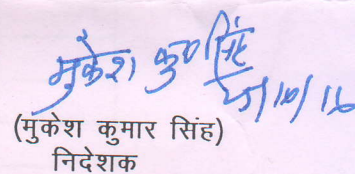 मुकेश कु० सिंह
25/10/16
(मुकेश कुमार सिंह)
निदेशक